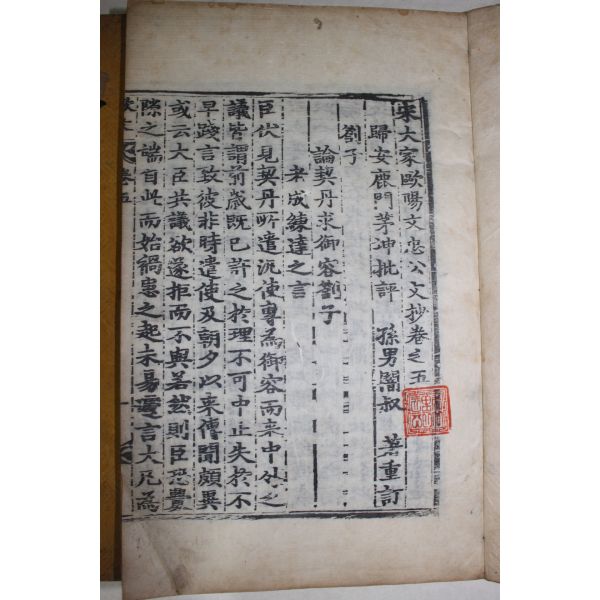 宋大家歐陽文忠公文抄卷之五
歸安鹿門茅坤批評 孫男闇叔 著重訂
劄子
論契丹求御容劄子
老成練達之言
臣伏見契丹所遣汎使專為御容而來中外之
議皆謂前歲既已許之於理不可中止失於不
早踐言致彼非時遣使及朝夕以来傳聞頗異
或云大臣共議欲遂拒而不與若然則臣恐釁
隙之端自此而始禍患之起未易遽言大凡為
歐文 卷五